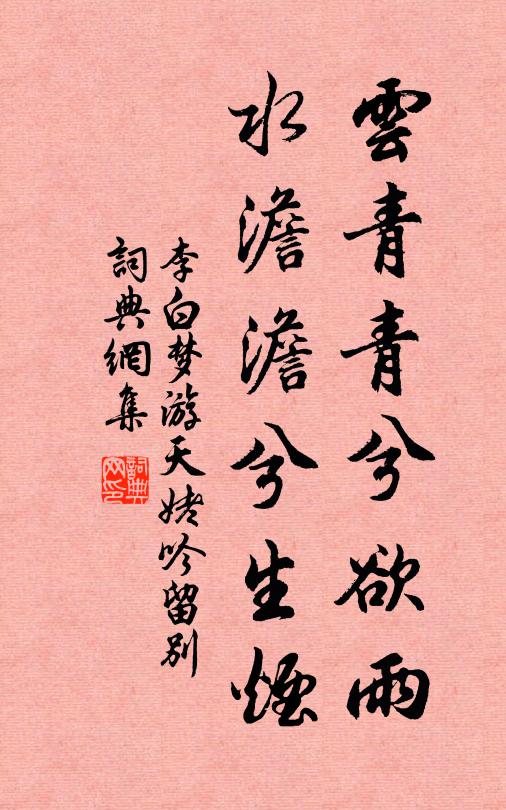 雲青青兮欲雨
水澹澹兮生煙
李白梦游天姥吟留别
詞典網集
詞典网印